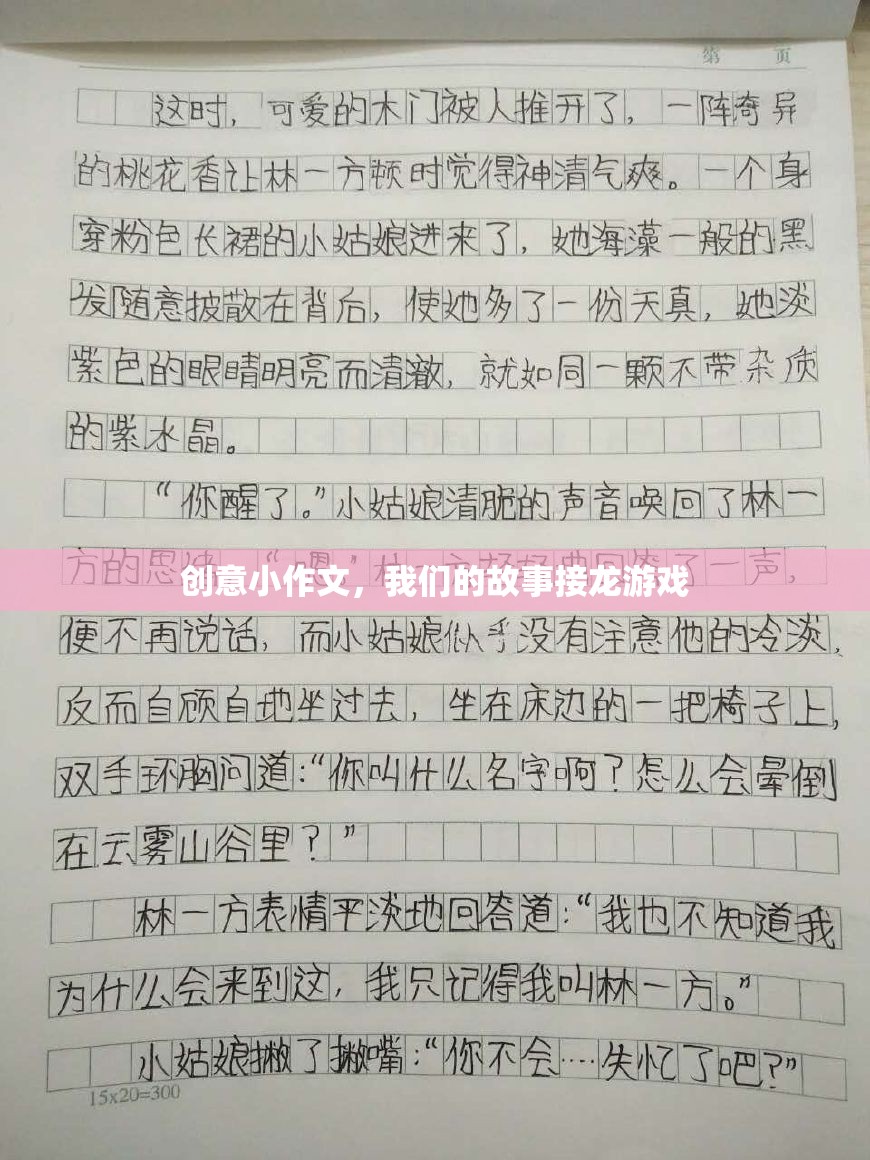 第 页
这时，可爱的木门被人推开了，一阵奇异
的桃花香让林一方顿时觉得神清气爽。一个身
穿粉色长裙的小姑娘进来了，她海藻一般的黑
发随意披散在背后，使她多了一份天真，她淡
紫色的眼睛明亮而清澈，就如同一颗不带杂质
的紫水晶。
“你醒了。”小姑娘清脆的声音唤回了林一
方的思绪，“嗯”林一方轻轻地回答了一声，
创意小作文，我们的故事接龙游戏
便不再说话，而小姑娘似乎没有注意他的冷淡，
反而自顾自地坐过去，坐在床边的一把椅子上，
双手环胸问道：“你叫什么名字啊？怎么会晕倒
在云雾山谷里？”
林一方表情平淡地回答道：“我也不知道我
为什么会来到这，我只记得我叫林一方。”
小姑娘撇了撇嘴：“你不会····失忆了吧？”
15x20=300